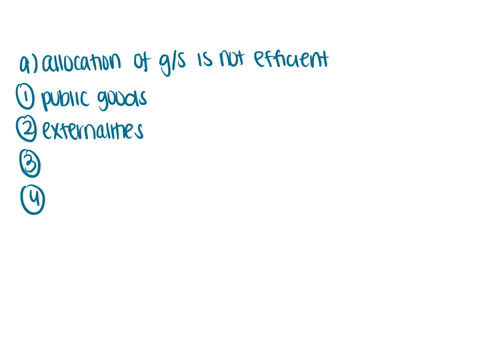 a) allocation of g/s is not efficient
① public goods
② externalities
③
④